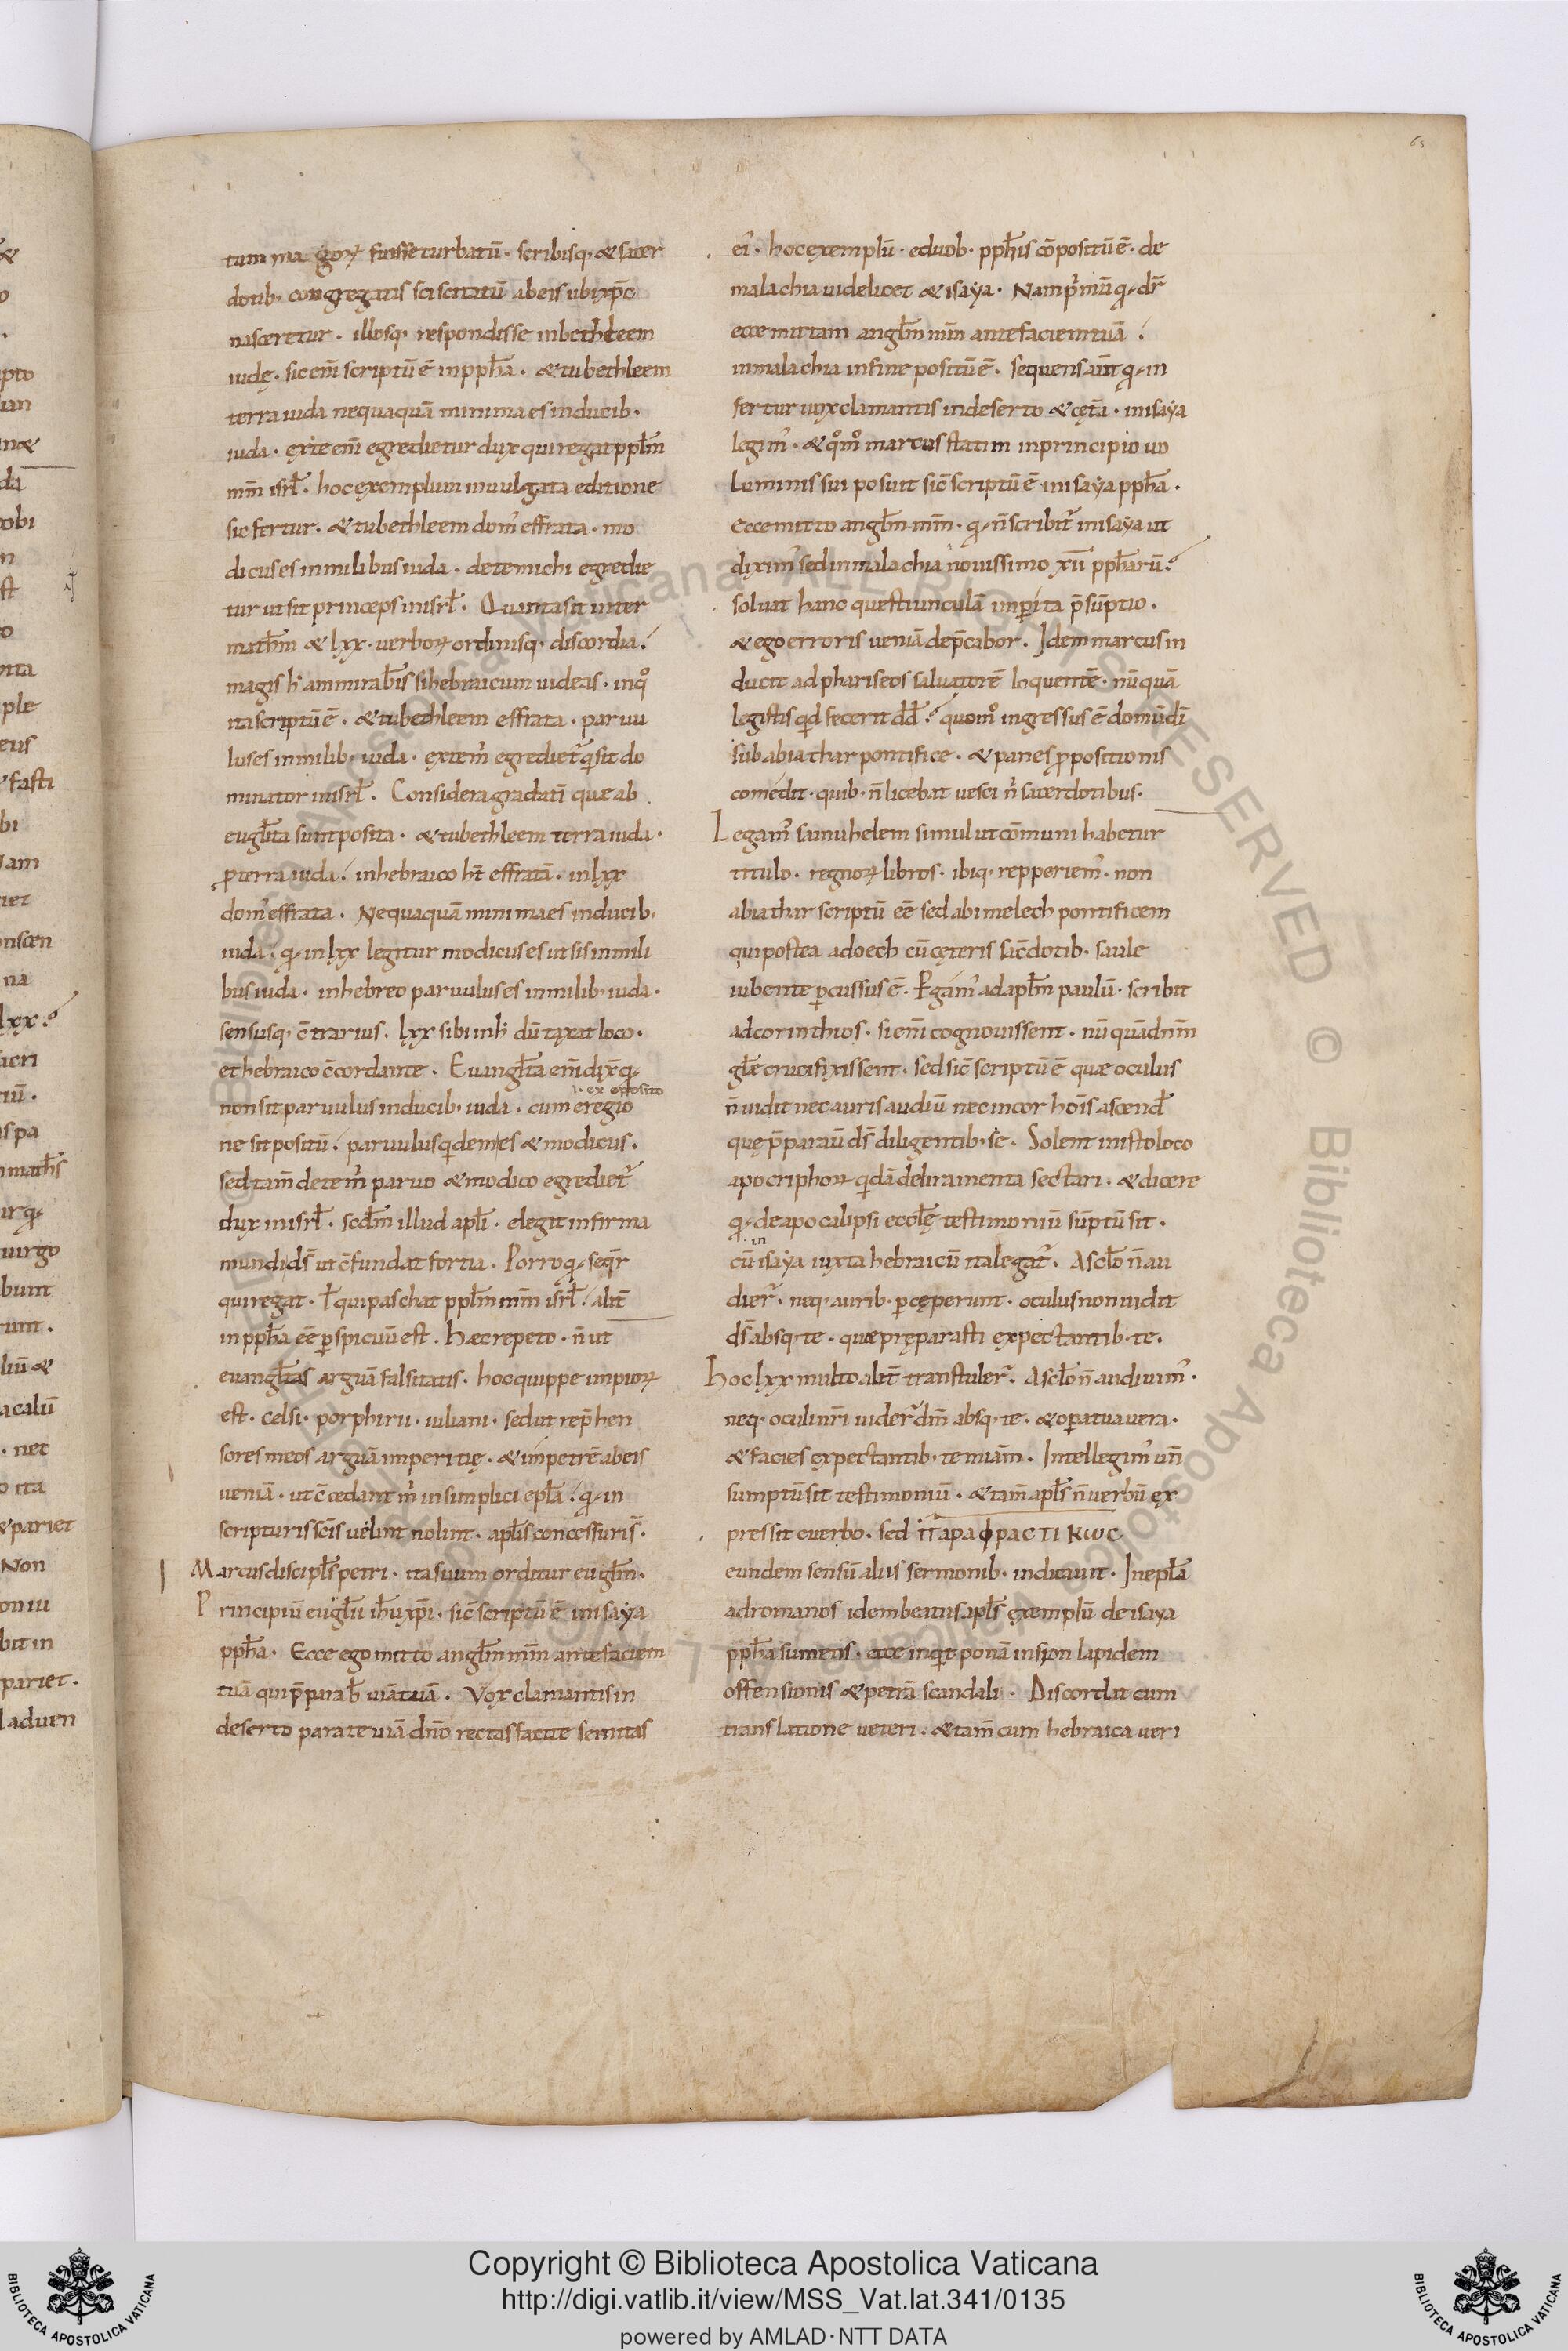 65
tum magoꝝ fuisse turbatū· scribisq; & sacer
dotib; congregatis sciscitatū ab eis ubi xp̄c
nasceretur· illosq; respondisse in bethleem
iudę· sic em̄ scriptū ē in pph̄a· & tu bethleem
terra iuda nequaquā minima es in ducib;
iuda· exte em̄ egredietur dux qui regat ppl̄m
mm̄ isrl̄· hoc exemplum in uulgata editione
sic fertur· & tu bethleem dom' effrata· mo
dicus es in milibus iuda· de te michi egredie
tur ut sit princeps in isrl̄· Quanta sit inter
math̄m & lxx· uerboꝝ ordinisq; discordia
magis h' ammirab̄is si hebraicum uideas· in qͦ
ita scriptū ē· & tu bethleem effrata· paruu
lus es in milib; iuda· ex te m̓ egrediet̓ q̓ sit do
minator in isrl̄· Considera gradatī quae ab
eugl̄ita sunt posita· & tu bethleem terra iuda·
ꝓ terra iuda· in hebraico ht̄ effratā· in lxx
dom' effrata· Nequaquā minima es in ducib;
iuda· q; in lxx legitur modicus es ut sis in mili
bus iuda· in hebreo paruulus es in milib; iuda·
sensusq; c̄trarius· lxx sibi in h' dū taxat loco·
et hebraico c̄cordante· Euangl̄ta em̄ dix̄ q;
ł· ex opposito
non sit paruulus in ducib; iuda· cum e regio
ne sit positū· paruulus q̓dem es & modicus·
sed tam̄ de te m̓ paruo & modico egrediet̓
dux in isrl̄· scdm̄ illud apl̄i· elegit infirma
mundi ds̄ ut c̄fundat fortia· Porro q; seqr̄
qui regat· ł qui paschat ppl̄m mm̄ isrl̄· alit̄
in pph̄a eē ꝑspicuū est· Haec repeto· n̄ ut
euangl̄tas arguā falsitatis· hoc quippe impioꝝ
est· celsi· porphirii· iuliani· sed ut rep̄hen
sores meos arguā imperitię· & impetrē ab eis
ueniā· ut c̄cedant m̓ in simplici epl̄a· q; in
scripturis sc̄is uelint nolint· apl̄is concessuri s̄·
Marcus discipl̄s petri· ita suum orditur eugl̄m·
Principiū eugl̄ii ih̄u xp̄i· sic̄ scriptū ē in isaẏa
pph̄a· Ecce ego mitto angl̄m mm̄ ante faciem
tuā qui p̄parab̄ uiā tuā· Vox clamantis in
deserto parate uiā dn̄o rectas facite semitas
ei'· hoc exemplū· e duob; pph̄is cōpositū ē· de
malachia uidelicet & isaẏa· Nam p̓mū q; dr̄
ecce mittam angl̄m mm̄ ante faciem tuā
in malachia in fine positū ē· sequens aūt q; in
fertur uox clamantis in deserto & cęt̄a· in isaẏa
legim'· & qͦmͦ marcus statim in principio uo
luminis sui posuit sic̄ scriptū ē in isaẏa pph̄a·
ecce mitto angl̄m mm̄· q; n̄ scribit̓ in isaẏa ut
dixim' sed in malachia nouissimo xii pph̄arū
soluat hanc questiunculā imꝑita p̄sūptio·
& ego erroris ueniā dep̄cabor· Idem marcus in
ducit ad phariseos saluatorē loquentē· nūquā
legistis qd̓ fecerit dd̄ quomͦ ingressus ē domū di'
sub abiathar pontifice· & panes ꝓpositionis
comedit· quib; n̄ licebat uesci n̓ sacerdotibus·
Legam' samuhelem simul ut cōmuni habetur
titulo· regnoꝝ libros· ibiq; repperiem'· non
abiathar scriptū eē sed abimelech pontificem
qui postea a doech cū cęteris sac̄dotib; saule
iubente ꝑcussus ē· Pgam' ad apl̄m paulū· scribit
ad corinthios· si em̄ cognouissent· nūquā dnm̄
gl̄e crucifixissent· sed sic̄ scriptū ē quae oculus
n̄ uidit nec auris audiū nec in cor hoīs ascend̄
quę p̄parau ds̄ diligentib; se· Solent in isto loco
apocriphoꝝ q̓dā deliramenta sectari· & dicere
q; de apocalipsi eccl̄ę testimoniū sūptū sit·
in
cū isaẏa iuxta hebraicū ita legat̓· A scl̄o n̄ au
dier̓· neq; aurib; ꝑceperunt· oculus non uidit
ds̄ absq; te· quae pręparasti expectantib; te·
Hoc lxx multo alit̄ transtuler̓· A scl̄o n̄ audiuim'·
neq; oculi nr̄i uider̓ dm̄ absq; te· & oꝑa tua uera·
& facies expectantib; te miām· Intellegim' un̄
sumptū sit testimoniū· & tam̄ apl̄s n̄ uerbū ex
pressit e uerbo· sed ΠΑΡΑΦΡΑCΤΙΚΩC
eundem sensū aliis sermonib; indicauit· In epl̄a
ad romanos idem beatus apl̄s exemplū de isaya
pph̄a sumens· ecce inq̓t ponā in sion lapidem
offensionis & petrā scandali· Discordat cum
translatione ueteri· & tam̄ cum hebraica ueri
Copyright © Biblioteca Apostolica Vaticana
http://digi.vatlib.it/view/MSS_Vat.lat.341/0135
powered by AMLAD·NTT DATA
BIBLIOTECA APOSTOLICA VATICANA
BIBLIOTECA APOSTOLICA VATICANA